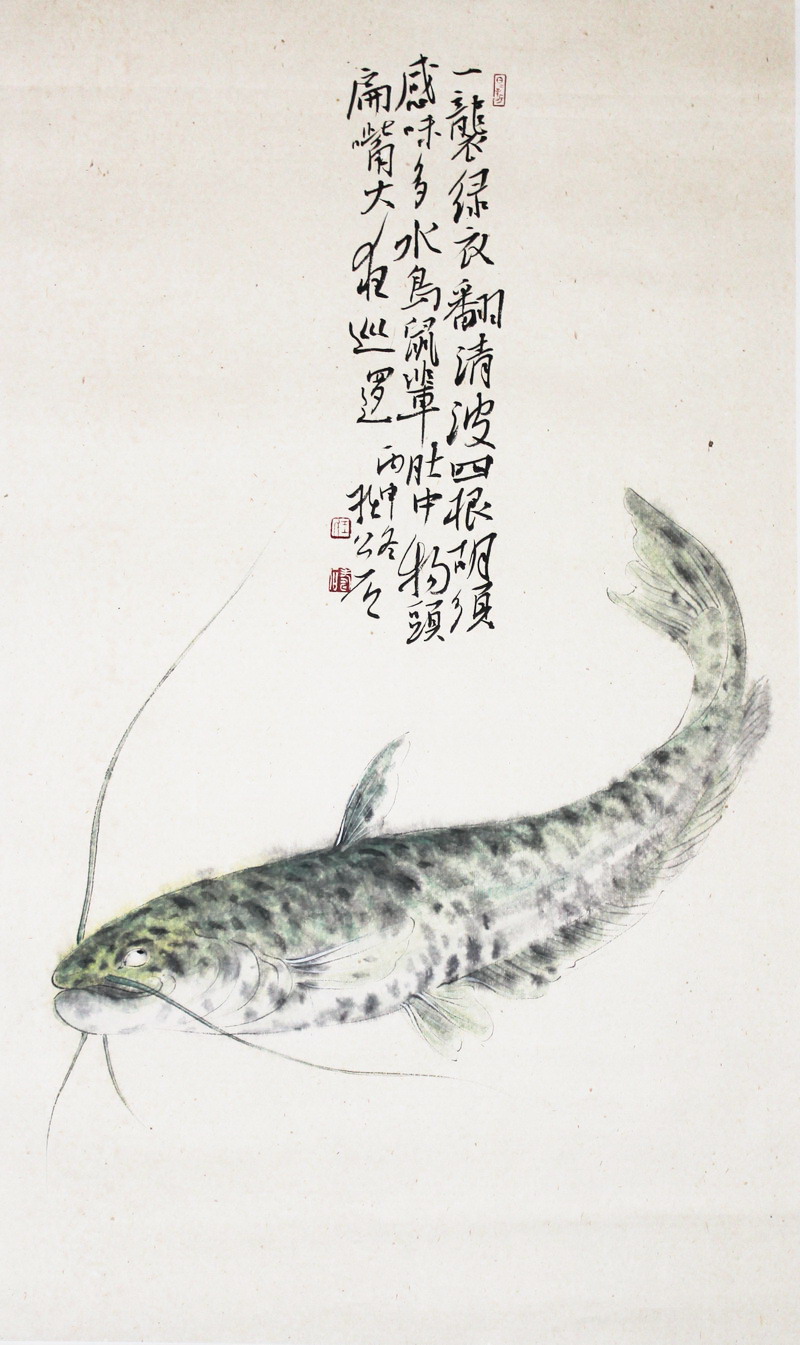 一襲绿衣翻清波四根胡须
感味多水鸟鼠輩肚中物頭
扁嘴大狂巡逻
丙申冬
公